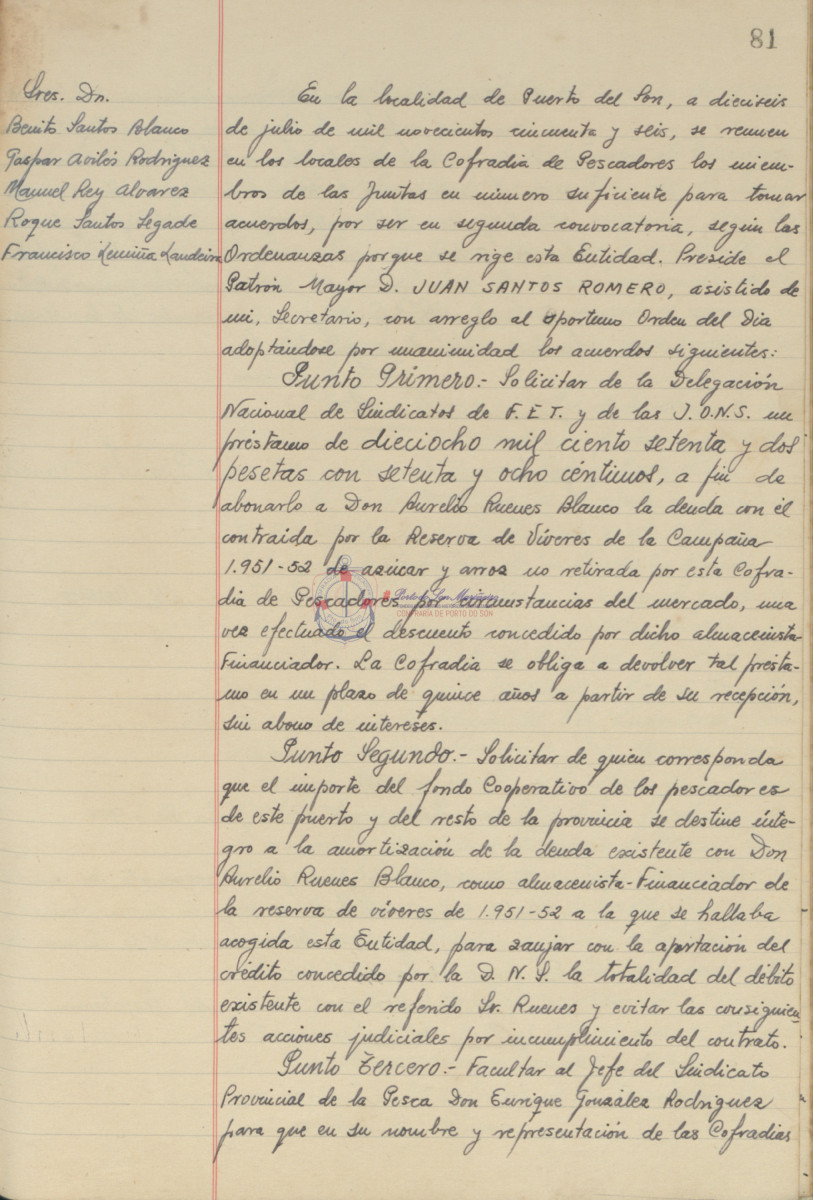 81
Sres. Dn.
Benito Santos Blanco
Gaspar Avilés Rodriguez
Manuel Rey Alvarez
Roque Santos Segade
Francisco Lemiña Landeira
En la localidad de Puerto del Son, a dieciseis
de julio de mil novecientos cincuenta y seis, se reunen
en los locales de la Cofradia de Pescadores los miem-
bros de las Juntas en número suficiente para tomar
acuerdos, por ser en segunda convocatoria, según las
Ordenanzas porque se rige esta Entidad. Preside el
Patrón Mayor D. JUAN SANTOS ROMERO, asistido de
mi, Secretario, con arreglo al oportuno Orden del Dia
adoptándose por unanimidad los acuerdos siguientes:
Punto Primero.- Solicitar de la Delegación
Nacional de Sindicatos de F.E.T. y de las J.O.N.S. un
préstamo de dieciocho mil ciento setenta y dos
pesetas con setenta y ocho céntimos, a fin de
abonarlo a Don Aurelio Ruenes Blanco la deuda con él
contraida por la Reserva de Víveres de la Campaña
1.951-52 de azúcar y arroz no retirada por esta Cofra-
dia de Pescadores por circunstancias del mercado, una
vez efectuado el descuento concedido por dicho almacenista-
Financiador. La Cofradia se obliga a devolver tal présta-
mo en un plazo de quince años a partir de su recepción,
sin abono de intereses.
Punto Segundo.- Solicitar de quien corresponda
que el importe del fondo Cooperativo de los pescadores
de este puerto y del resto de la provincia se destine ínte-
gro a la amortización de la deuda existente con Don
Aurelio Ruenes Blanco, como almacenista-Financiador de
la reserva de víveres de 1.951-52 a la que se hallaba
acogida esta Entidad, para zanjar con la aportación del
crédito concedido por la D.N.S. la totalidad del débito
existente con el referido Sr. Ruenes y evitar las consiguien-
tes acciones judiciales por incumplimiento del contrato.
Punto Tercero.- Facultar al Jefe del Sindicato
Provincial de la Pesca Don Enrique González Rodriguez
para que en su nombre y representación de las Cofradias
CONFRARÍA DE PORTO DO SON